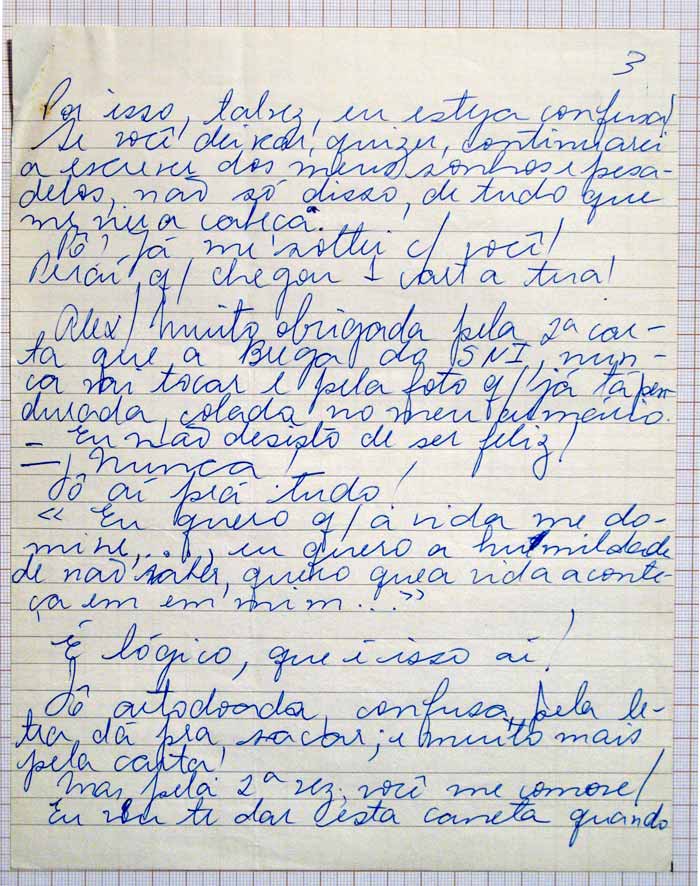 3
Por isso, talvez, eu esteja confusa!
Se você deixar, quizer, continuarei
a escrever dos meus sonhos e pesa-
delos, não só disso, de tudo que
me vier a cabeça.
Pô, já me soltei c/ você!
Peraí q/ chegou 1 carta tua!
Alex! Muito obrigada pela 2ª car-
ta que a do SNI, nun-
ca vai tocar e pela foto q/ já tá pen-
durada, colada no meu armário.
- Eu não desisto de ser feliz!
- Nunca!
Tô aí prá tudo!
"Eu quero q/ a vida me do-
mine,..., eu quero a humildade
de não saber, quero que a vida aconte-
ça em em mim..."
É lógico, que é isso aí!
Tô atordoada, confusa, pela le-
tra dá pra sacar; e muito mais
pela carta!
Mas pela 2ª vez, você me comove!
Eu vou te dar esta caneta quando